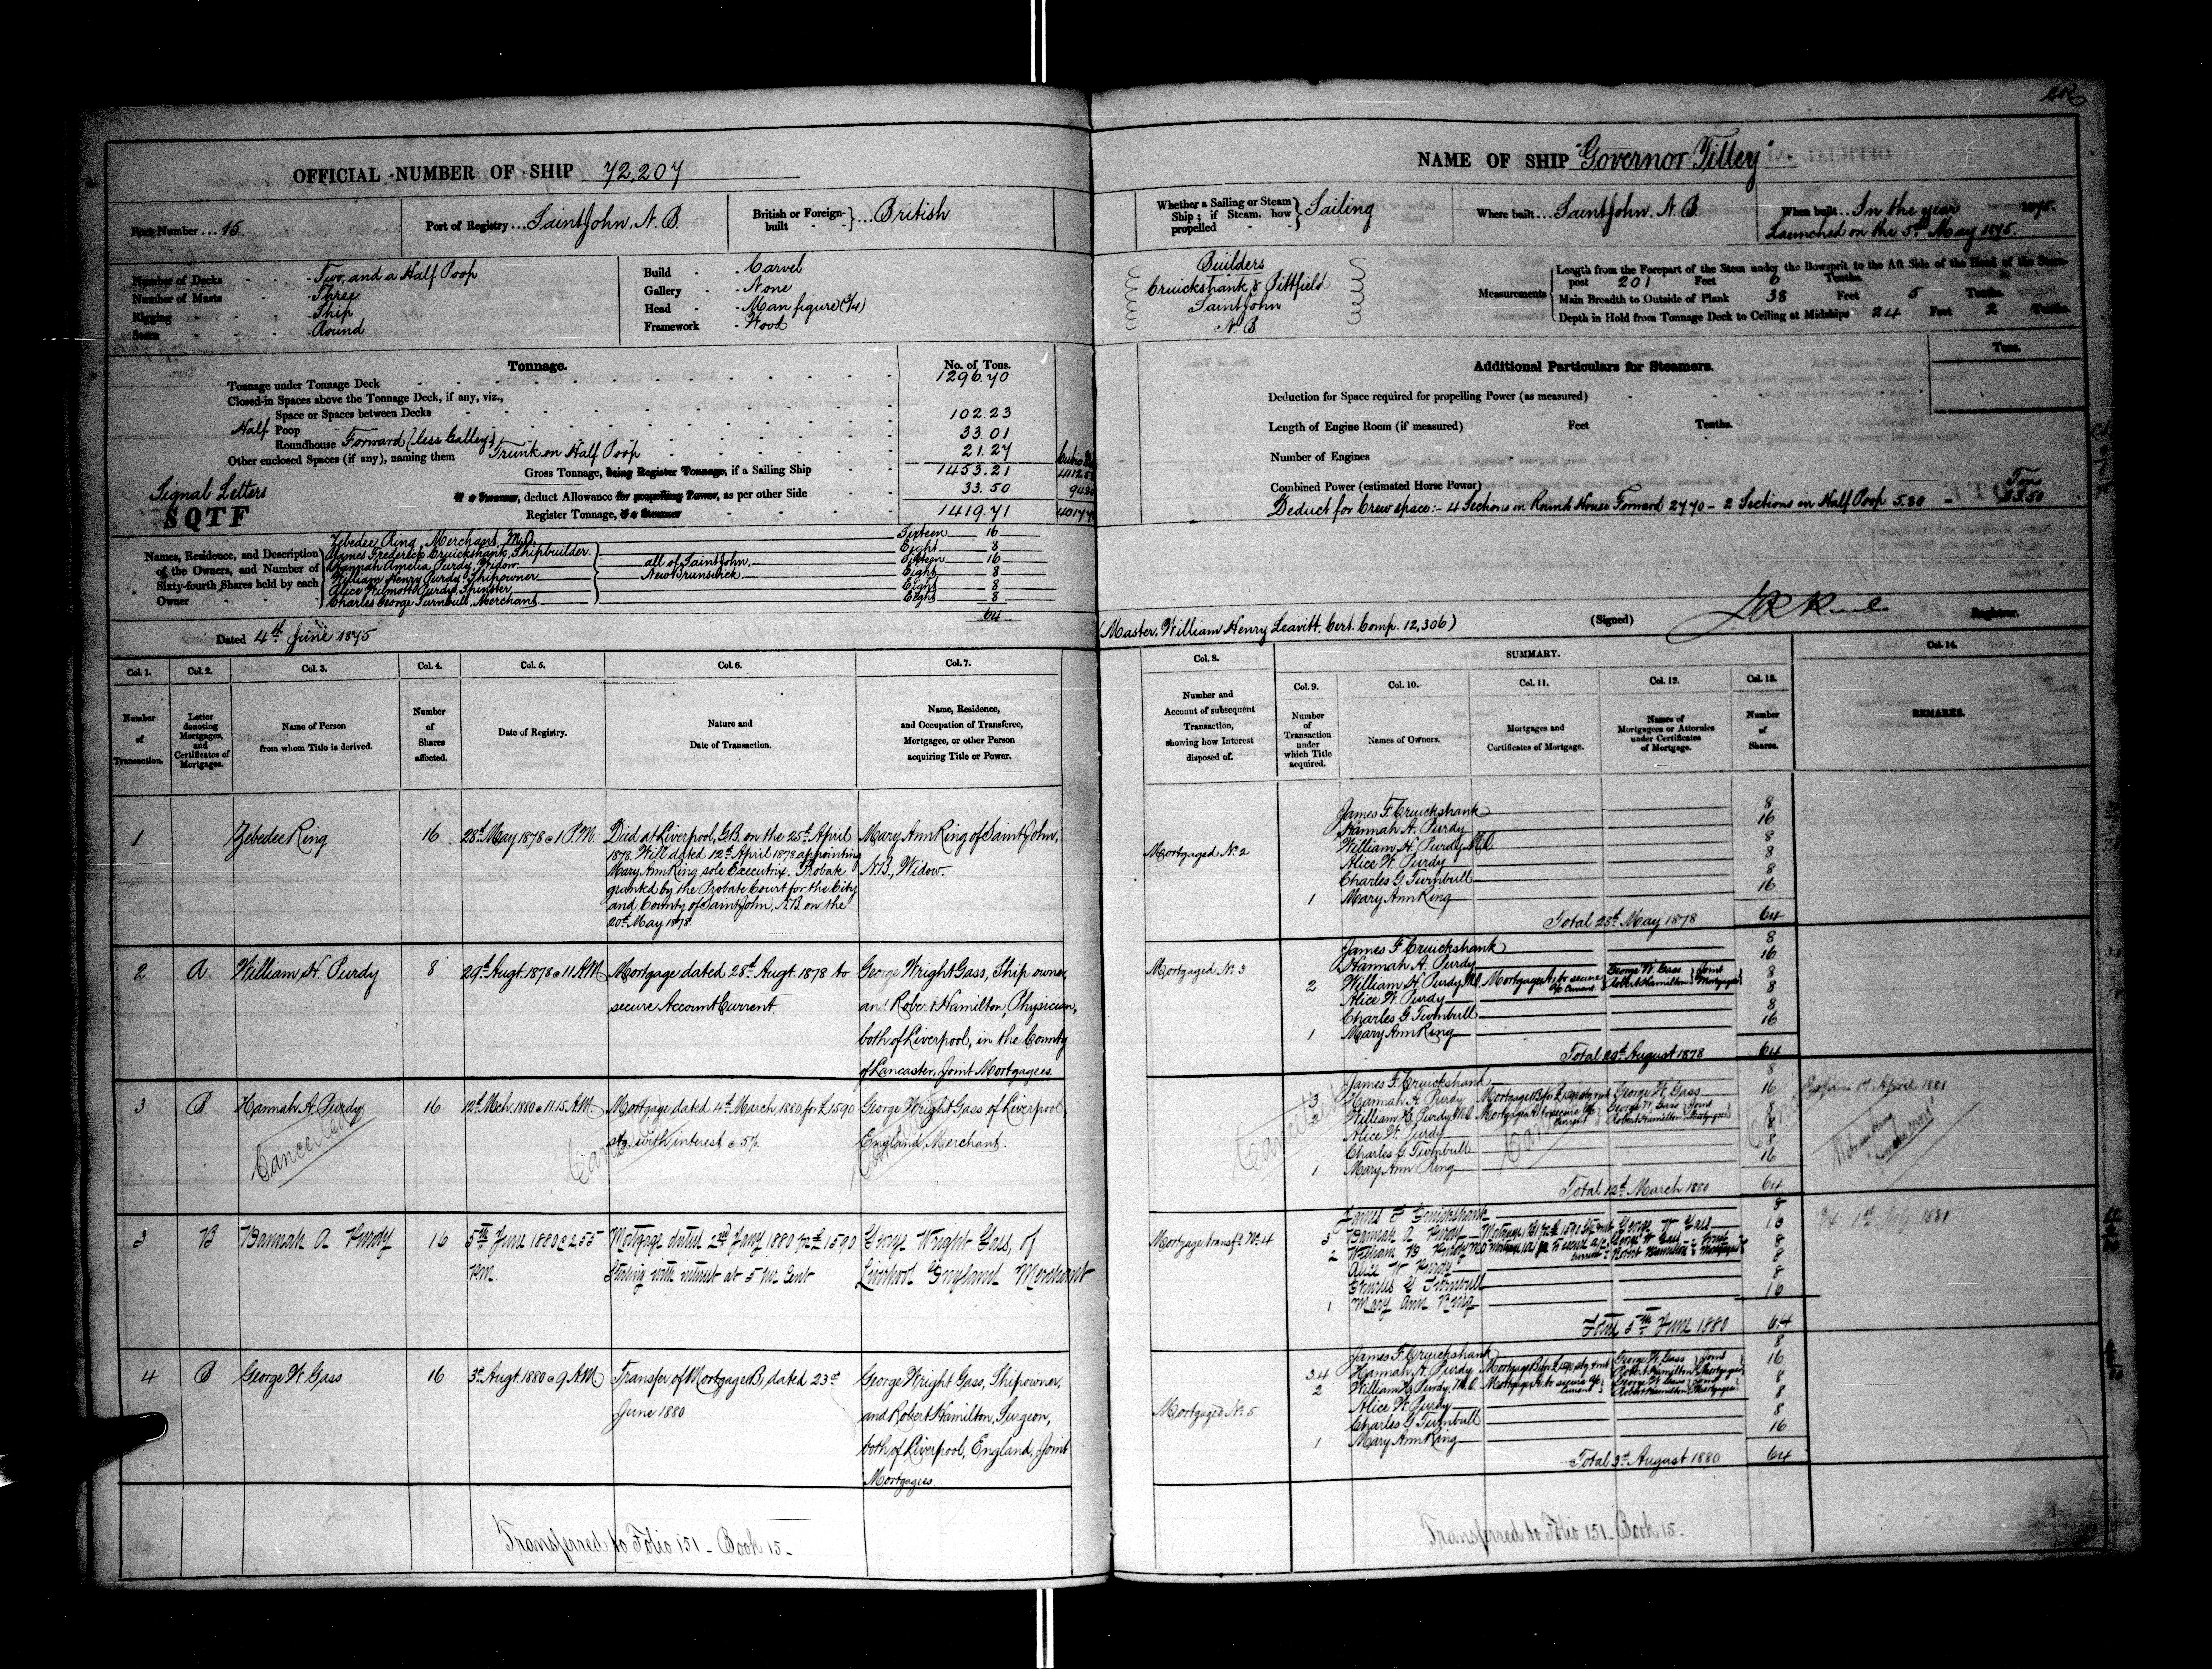 OFFICIAL NUMBER OF SHIP 72,207
Port Number ... 15.
Port of Registry ... Saint John. N. B.
British or Foreign-built ... British
Number of Decks - Two, and a Half Poop
Number of Masts - Three
Rigging - Ship
Stern - Round
Build - Carvel
Gallery - None
Head - Man figure (3/4)
Framework - Wood
Tonnage.
No. of Tons.
Tonnage under Tonnage Deck 1296.70
Closed-in Spaces above the Tonnage Deck, if any, viz.,
Space or Spaces between Decks 102.23
Half Poop 33.01
Roundhouse Forward (less Galley)
Other enclosed Spaces (if any), naming them Trunk on Half Poop 21.27
Gross Tonnage, being Register Tonnage, if a Sailing Ship 1453.21
if a Steamer, deduct Allowance for propelling Power, as per other Side 33.50
Register Tonnage, if a Steamer 1419.71
Signal Letters
SQTF
Names, Residence, and Description of the Owners, and Number of Sixty-fourth Shares held by each Owner
Zebedee Ring, Merchant, M.O. Sixteen 16
James Frederick Cruickshank, Shipbuilder. Eight 8
Hannah Amelia Purdy, Widow Sixteen 16
William Henry Purdy, Shipowner Eight 8
Alice Wilmott Purdy, Spinster Eight 8
Charles George Turnbull, Merchant Eight 8
all of Saint John, New Brunswick
64
Dated 4th June 1875
Col. 1. Col. 2. Col. 3. Col. 4. Col. 5. Col. 6. Col. 7.
Number of Transaction.
Letter denoting Mortgages, and Certificates of Mortgages.
Name of Person from whom Title is derived.
Number of Shares affected.
Date of Registry.
Nature and Date of Transaction.
Name, Residence, and Occupation of Transferee, Mortgagee, or other Person acquiring Title or Power.
1 Zebedee Ring 16 28th May 1878 @ 1 P.M.
Died at Liverpool, G.B. on the 25th April
1878. Will dated 12th April 1878 appointing
Mary Ann Ring sole Executrix. Probate
granted by the Probate Court for the City
and County of Saint John, N.B. on the
20th May 1878.
Mary Ann Ring of Saint John,
N.B., Widow.
2 A William H. Purdy 8 29th Augt. 1878 @ 11 A.M.
Mortgage dated 28th Augt. 1878 to
secure Account Current
George Wright Gass, Ship owner,
and Robert Hamilton, Physician,
both of Liverpool, in the County
of Lancaster, Joint Mortgagees.
3 B Hannah A. Purdy 16 12th Mch. 1880 @ 11.15 A.M.
Mortgage dated 4th March, 1880 for £1590
stg with interest @ 5%.
George Wright Gass of Liverpool
England, Merchant.
Cancelled
Cancelled
Cancelled
3 B Hannah A Purdy 16 5th June 1880 @ 2.55
P.M.
Mortgage dated 2nd Jany 1880 for £1590
Sterling with interest at 5 per Cent
George Wright Gass, of
Liverpool England Merchant
4 B George W. Gass 16 3rd Augt. 1880 @ 9 A.M.
Transfer of Mortgage B, dated 23rd
June 1880
George Wright Gass, Shipowner,
and Robert Hamilton, Surgeon,
both of Liverpool, England, Joint
Mortgagees.
Transferred to Folio 151 - Book 15 -
NAME OF SHIP "Governor Tilley".
Whether a Sailing or Steam Ship; if Steam, how propelled Sailing
Where built ... Saint John, N. B.
When built ... In the year 1875.
Launched on the 5th May 1875.
Builders
Cruickshank & Pittfield
Saint John
N. B.
Measurements
Length from the Forepart of the Stem under the Bowsprit to the Aft Side of the Head of the Stern-
post 201 Feet 6 Tenths.
Main Breadth to Outside of Plank 38 Feet 5 Tenths.
Depth in Hold from Tonnage Deck to Ceiling at Midships 24 Feet 2 Tenths.
Additional Particulars for Steamers.
Tons.
Deduction for Space required for propelling Power (as measured)
Length of Engine Room (if measured) Feet Tenths.
Number of Engines
Combined Power (estimated Horse Power) Tons
Deduct for Crew space:- 4 Sections in Round House Forward 27.70 - 2 Sections in Half Poop 5.80 - 33.50
(Master, William Henry Leavitt, Cert. Comp. 12,306)
(Signed)
Registrar.
Col. 8. SUMMARY. Col. 14.
Col. 9. Col. 10. Col. 11. Col. 12. Col. 13.
Number and Account of subsequent Transaction, showing how Interest disposed of.
Number of Transaction under which Title acquired.
Names of Owners.
Mortgages and Certificates of Mortgage.
Names of Mortgagees or Attornies under Certificates of Mortgage.
Number of Shares.
REMARKS.
Mortgaged No. 2
James F. Cruickshank 8
Hannah A. Purdy 16
William H. Purdy M.O. 8
Alice W. Purdy 8
Charles G. Turnbull 8
1 Mary Ann Ring 16
Total 28th May 1878 64
Mortgaged No. 3
James F. Cruickshank 8
Hannah A. Purdy 16
2 William H. Purdy M.O. Mortgage A, to secure a/c current George W. Gass Robert Hamilton Joint Mortgagees 8
Alice W. Purdy 8
Charles G. Turnbull 8
1 Mary Ann Ring 16
Total 29th August 1878 64
James F. Cruickshank 8
3 Hannah A. Purdy Mortgage B for £1590 stg & int George W. Gass 16
2 William H. Purdy, M.O. Mortgage A to secure a/c current George W. Gass Robert Hamilton Joint Mortgagees 8
Alice W. Purdy 8
Charles G. Turnbull 8
1 Mary Ann Ring 16
Total 12th March 1880 64
Cancelled
Expires 1st April 1881
Mortgage transfd. No. 4
James F Cruickshank 8
3 Hannah A Purdy Mortgage (B) for £1590 Stg & int George W Gass 16
2 William H Purdy M.O. Mortgage (A) to secure a/c current George W Gass Robert Hamilton Joint Mortgagees 8
Alice W Purdy 8
Charles G Turnbull 8
1 Mary Ann Ring 16
Total 5th June 1880 64
Ex 1st July 1881
Mortgaged No. 5
James F. Cruickshank 8
3.4 Hannah A. Purdy Mortgage B for £1590 stg & int George W. Gass Robert Hamilton Joint Mortgagees 16
2 William H. Purdy, M.O. Mortgage A to secure a/c current George W. Gass Robert Hamilton Joint Mortgagees 8
Alice W. Purdy 8
Charles G Turnbull 8
1 Mary Ann Ring 16
Total 3rd August 1880 64
Transferred to Folio 151 - Book 15.